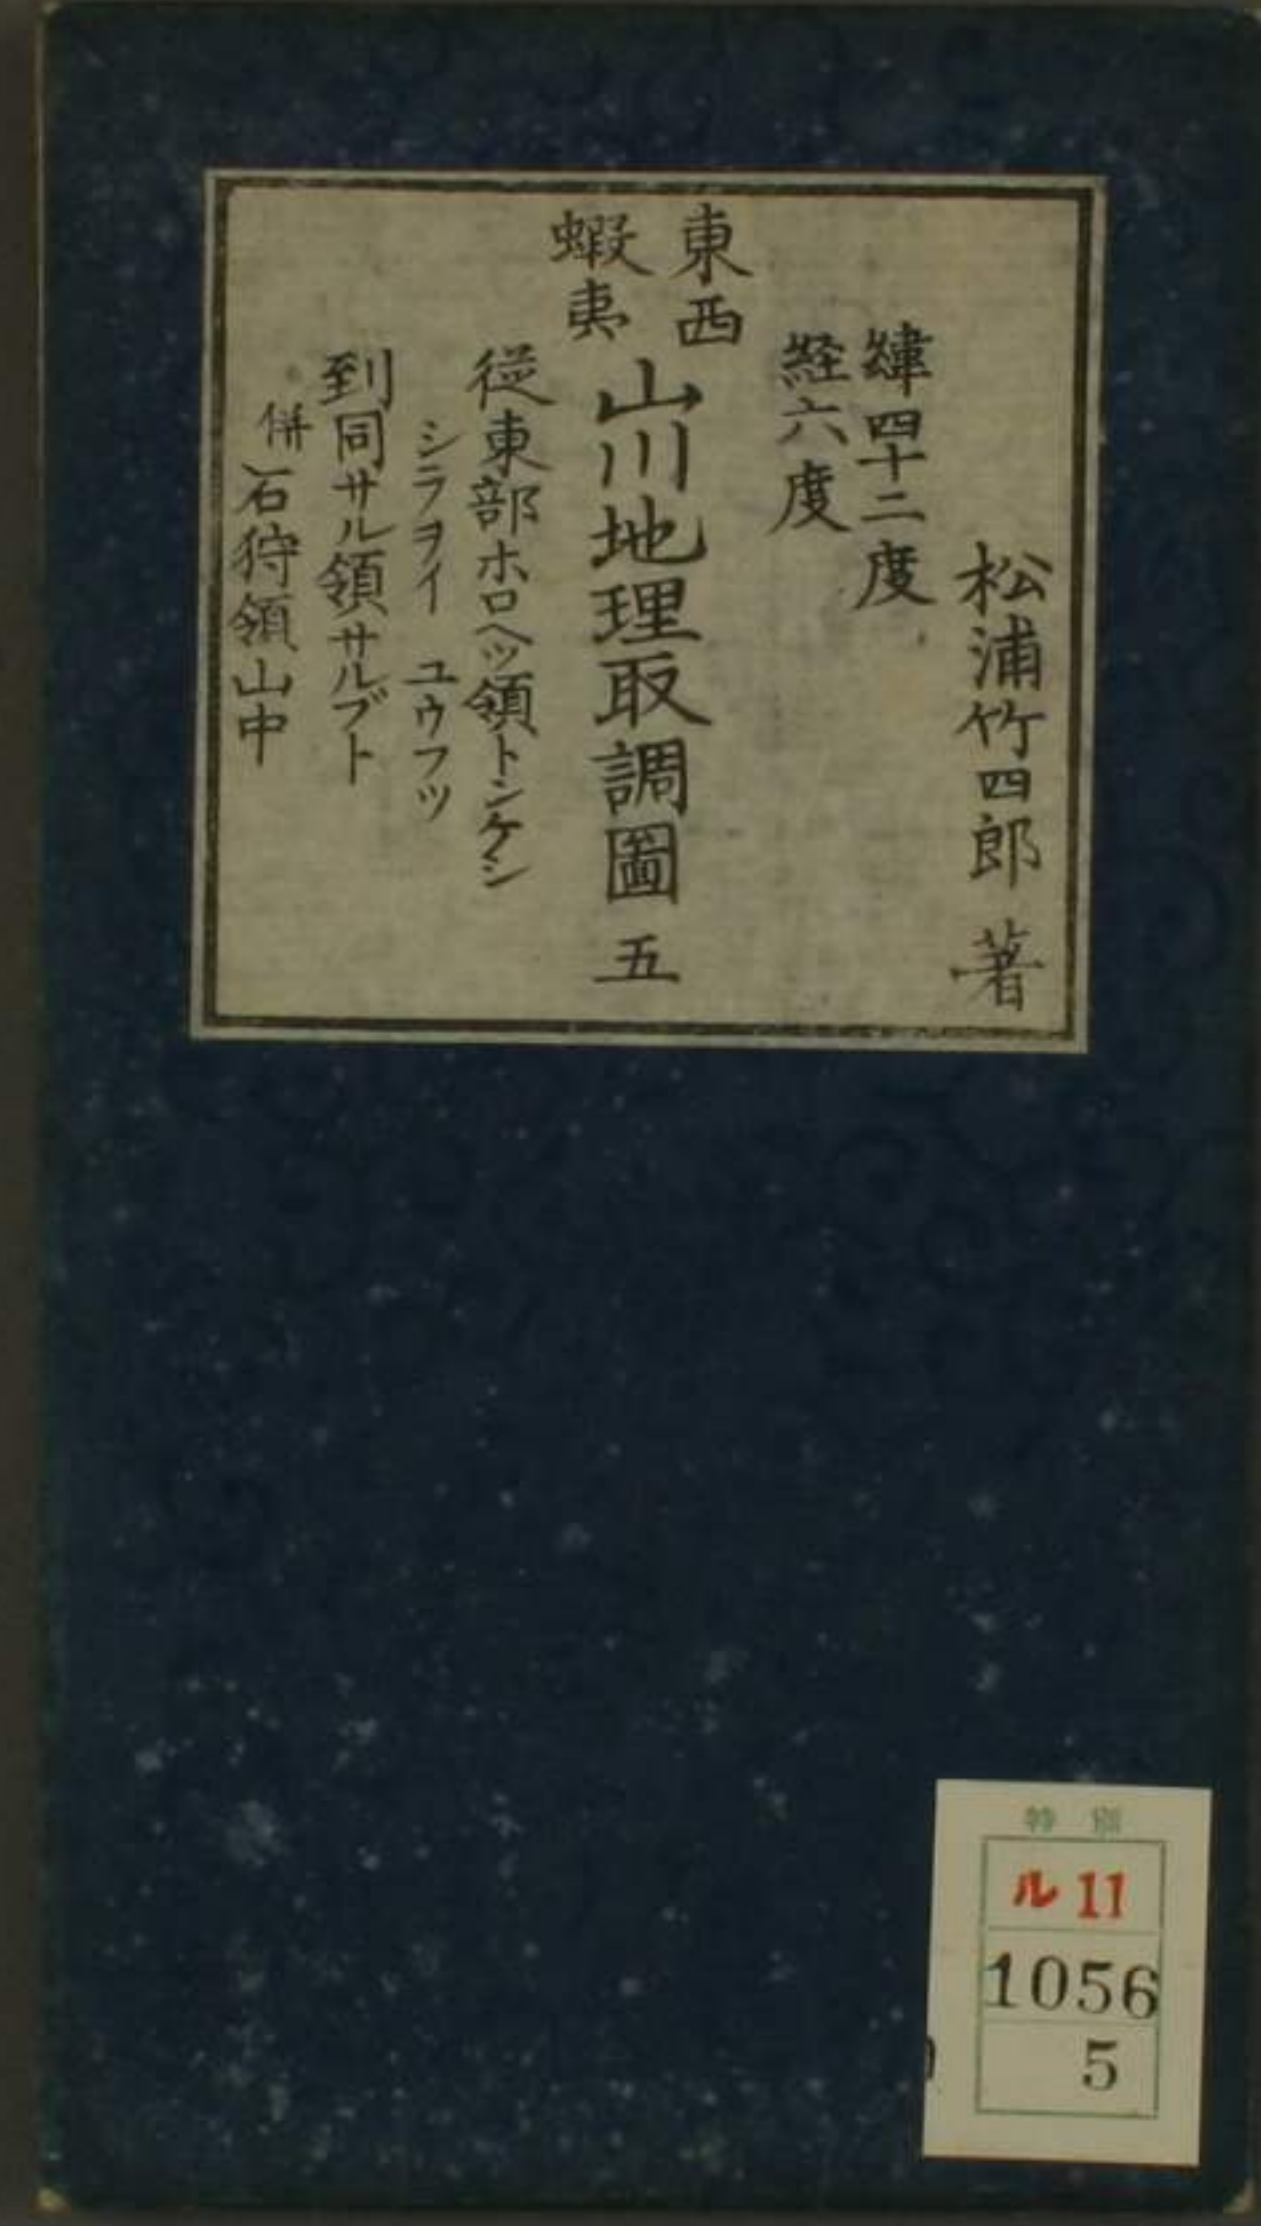 松浦竹四郎 著
緯四十二度
経六度
東西
蝦夷
山川地理取調圖 五
従東部ホロヘツ領トンケシ
シラヲイ ユウフツ
到同サル領サルブト
併石狩領山中
特別
ル11
1056
5